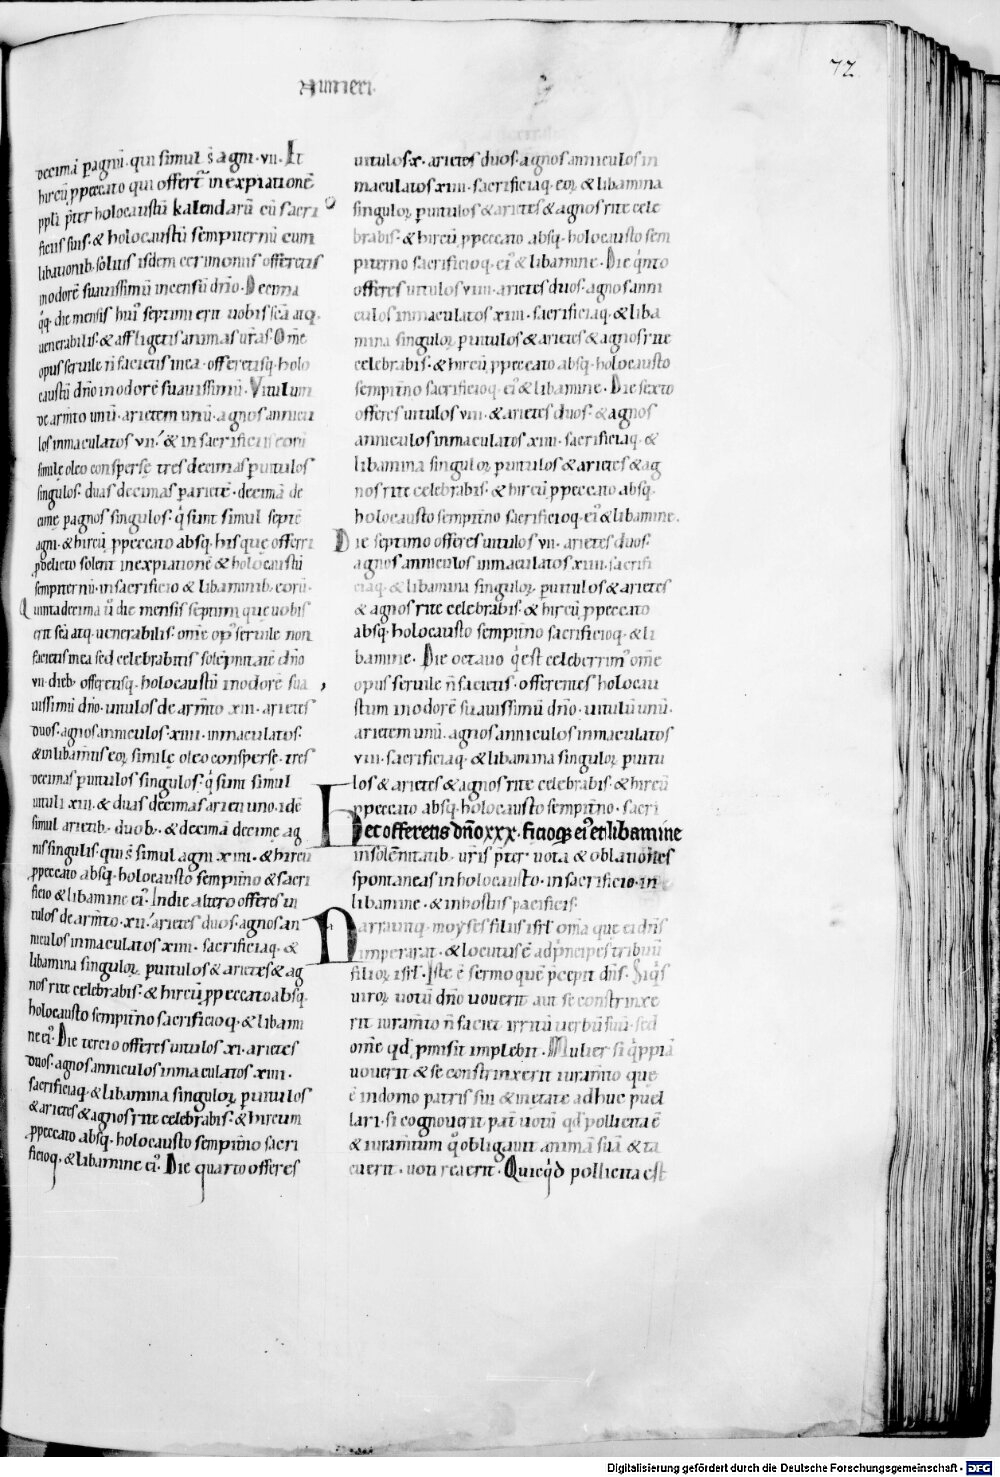 Numeri
72
decimā ꝑ agnū. qui simul s̄ agni. vii. Et
hircū ꝓ peccato qui offert᷑ in expiationē
ppli p̄ter holocaustū kalendarū cū sacri
ficiis suis. & holocaustū sempiternū cum
libationib. solitis isdem cerimoniis offeretis
in odorē suauissimū incensū dn̄o. Decima
q̊q. die mensis hui᷒ septimi erit uobis sc̄a atq.
uenerabilis. & affligetis animas ur̄as. Om̄e
opus seruile n̄ facietis in ea. offeretisq. holo
caustū dn̄o in odorē suauissimū. Vitulum
de arm̄to unū. arietem unū. agnos annicu
los inmaculatos vii. & in sacrificiis eorū
similę oleo consperse tres decimas ꝑ uitulos
singulos. duas decimas ꝑ arietē. decimā de
cime ꝑ agnos singulos. q̇ sunt simul septē
agni. & hircū ꝓ peccato absq. his que offerri
ꝓ delicto solent in expiationē & holocaustū
sempiternū. in sacrificio & libaminib. eorū.
Quinta decima ū die mensis septimi que uobis
erit sc̄a atq. uenerabilis. om̄e op᷒ seruile non
facietis in ea sed celebrabitis solēpnitatē dn̄o
vii. dieb. offeretisq. holocaustū in odorē sua
uissimū dn̄o. uitulos de arm̄to xiii. arietes
duos. agnos anniculos xiiii. inmaculatos.
& in libam̄tis eoꝝ similę oleo consperse. tres
decimas ꝑ uitulos singulos. q̇ sunt simul
uituli xiii. & duas decimas arieti uno. id ē
simul arietib. duob. & decimā decime ag
nis singulis. qui s̄ simul agni xiiii. & hircū
ꝓ peccato absq. holocausto sempit̄no & sacri
ficio & libamine ei᷒. In die altero offeres ui
tulos de arm̄to. xii. arietes duos. agnos an
niculos inmaculatos xiiii. sacrificiaq. &
libamina singuloꝝ ꝑ uitulos & arietes & ag
nos rite celebrabis. & hircū ꝓ peccato absq.
holocausto sempit̄no sacrificioq. & libami
ne ei᷒. Die tercio offeres uitulos xi. arietes
duos. agnos anniculos inmaculatos xiiii.
sacrificiaq. & libamina singuloꝝ ꝑ uitulos
& arietes & agnos rite celebrabis. & hircum
ꝓ peccato absq. holocausto sempit̄no sacri
ficioq. & libamine ei᷒. Die quarto offeres
uitulos x. arietes duos. agnos anniculos in
maculatos xiiii. sacrificiaq. eoꝝ & libamina
singuloꝝ ꝑ uitulos & arietes & agnos rite cele
brabis. & hircū ꝓ peccato absq. holocausto sem
piterno sacrificioq. ei᷒ & libamine. Die q̇nto
offeres uitulos viiii. arietes duos. agnos anni
culos inmaculatos xiiii. sacrificiaq. & liba
mina singuloꝝ ꝑ uitulos & arietes & agnos rite
celebrabis. & hircū ꝓ peccato absq. holocausto
sempit̄no sacrificioq. ei᷒ & libamine. Die sexto
offeres uitulos viii. & arietes duos. & agnos
anniculos inmaculatos xiiii. sacrificiaq. &
libamina singuloꝝ ꝑ uitulos & arietes & ag
nos rite celebrabis. & hircū ꝓ peccato absq.
holocausto sempit̄no sacrificioq. ei᷒ & libamine.
Die septimo offeres uitulos vii. arietes duos.
agnos anniculos inmaculatos xiiii. sacrifi
ciaq. & libamina singuloꝝ ꝑ uitulos & arietes
& agnos rite celebrabis. & hircū ꝓ peccato
absq. holocausto sempit̄no sacrificioq. & li
bamine. Die octauo q̇ est celeberrim᷒ om̄e
opus seruile n̄ facietis. offerentes holocau
stum in odorē suauissimū dn̄o. uitulū unū.
arietem unū. agnos anniculos inmaculatos
vii. sacrificiaq. & libamina singuloꝝ ꝑ uitu
los & arietes & agnos rite celebrabis. & hircū
ꝓ peccato absq. holocausto sempit̄no. sacri
Hec offeretis dn̄o xxx. ficioq; ei᷒ et libamine
in solēnitatib. ur̄is p̄ter uota & oblationes
spontaneas in holocausto. in sacrificio. in
libamine. & in hostiis pacificis.
Narrauitq. moyses filiis isrl̄ om̄a que ei dn̄s
imperarat. & locutus ē ad p̄ncipes tribuū
filioꝝ isrl̄. Iste ē sermo quē p̄cepit dn̄s. Siq̇s
uiroꝝ uotū dn̄o uouerit aut se constrinxe
rit iuram̄to n̄ faciet irritū uerbū suū. sed
om̄e qd̄ ꝓmisit implebit. Mulier si q̇ppiā
uouerit & se constrinxerit iuram̄to que
ē in domo patris sui & in etate adhuc puel
lari. si cognouerit pat̄ uotū qd̄ pollicita ē
& iuram̄tum q̊ obligauit animā suā & ta
cuerit. uoti rea erit. Quicq̇d pollicita est
Digitalisierung gefördert durch die Deutsche Forschungsgemeinschaft - DFG